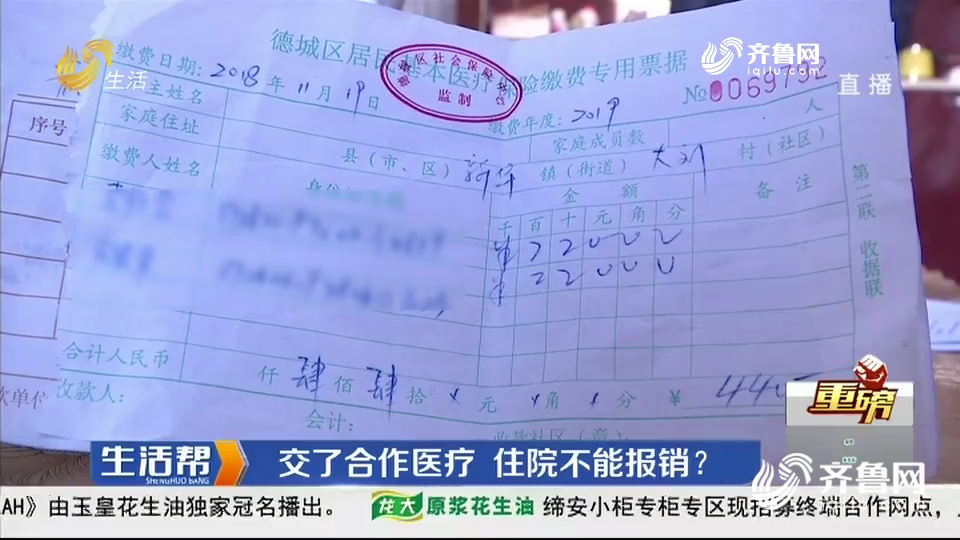 生活
齐鲁网
iqilu.com
直播
德城区居民基本医疗保险缴费专用票据
区社会保险
监制
缴费日期: 2018 年 11 月 19 日
缴费年度: 2019
主姓名
家庭成员数
人
序号
家庭住址
县(市、区) 新华 镇(街道) 大刘 村(社区)
缴费人姓名
金额
备注
千 百 十 元 角 分
2 2 0 0 0
2 2 0 0 0
第二联 收据联
合计人民币
仟 肆 佰 肆 拾 元 角 分 ¥
收款人:
会计:
款单位
重磅
生活帮
SHENGHUO BANG
交了合作医疗 住院不能报销?
齐鲁网
AH》由玉皇花生油独家冠名播出。
龙大 原浆花生油 缔安小柜专柜专区现招募终端合作网点,